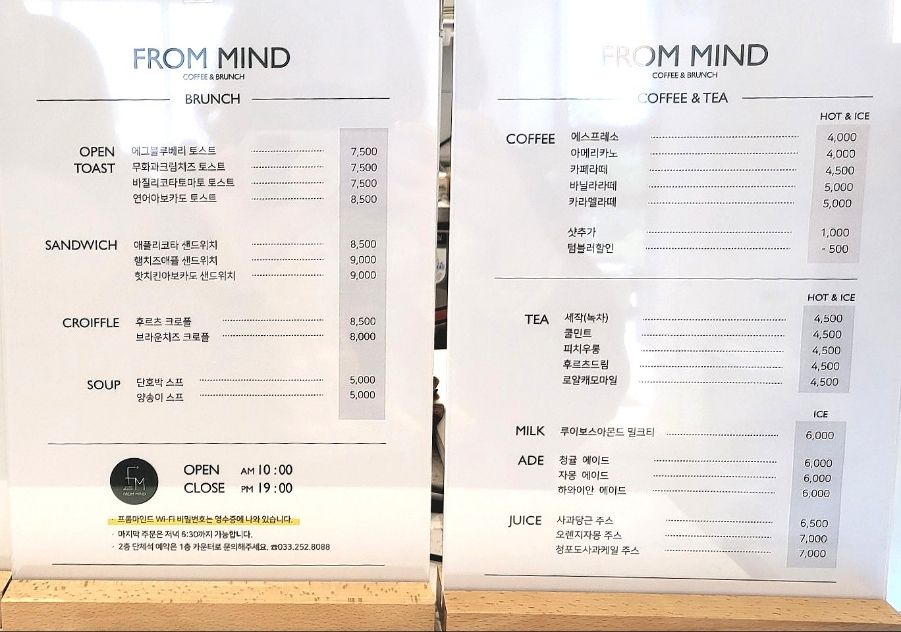 FROM MIND
COFFEE & BRUNCH
BRUNCH
OPEN TOAST
에그블루베리 토스트 7,500
무화과크림치즈 토스트 7,500
바질리코타토마토 토스트 7,500
연어아보카도 토스트 8,500
SANDWICH
애플리코타 샌드위치 8,500
햄치즈애플 샌드위치 9,000
핫치킨아보카도 샌드위치 9,000
CROIFFLE
후르츠 크로플 8,500
브라운치즈 크로플 8,000
SOUP
단호박 스프 5,000
양송이 스프 5,000
FM
FROM MIND
OPEN AM 10:00
CLOSE PM 19:00
· 프롬마인드 Wi-Fi 비밀번호는 영수증에 나와 있습니다.
· 마지막 주문은 저녁 6:30까지 가능합니다.
· 2층 단체석 예약은 1층 카운터로 문의해주세요. ☎033.252.8088
FROM MIND
COFFEE & BRUNCH
COFFEE & TEA
HOT & ICE
COFFEE
에스프레소 4,000
아메리카노 4,000
카페라떼 4,500
바닐라라떼 5,000
카라멜라떼 5,000
샷추가 1,000
텀블러할인 - 500
HOT & ICE
TEA
세작(녹차) 4,500
쿨민트 4,500
피치우롱 4,500
후르츠드림 4,500
로얄캐모마일 4,500
ICE
MILK
루이보스아몬드 밀크티 6,000
ADE
청귤 에이드 6,000
자몽 에이드 6,000
하와이안 에이드 6,000
JUICE
사과당근 주스 6,500
오렌지자몽 주스 7,000
청포도사과케일 주스 7,000